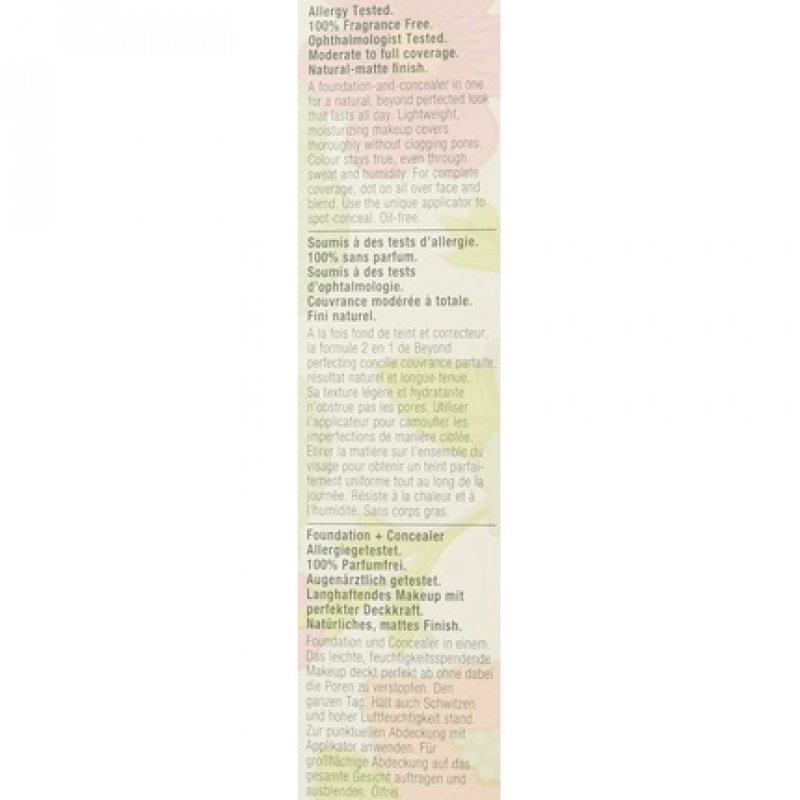 Allergy Tested.
100% Fragrance Free.
Ophthalmologist Tested.
Moderate to full coverage.
Natural-matte finish.
A foundation-and-concealer in one
for a natural, beyond perfected look
that lasts all day. Lightweight,
moisturizing makeup covers
thoroughly without clogging pores.
Colour stays true, even through
sweat and humidity. For complete
coverage, dot on all over face and
blend. Use the unique applicator to
spot-conceal. Oil-free.
Soumis à des tests d'allergie.
100% sans parfum.
Soumis à des tests
d'ophtalmologie.
Couvrance modérée à totale.
Fini naturel.
A la fois fond de teint et correcteur,
la formule 2 en 1 de Beyond
perfecting concilie couvrance parfaite,
résultat naturel et longue tenue.
Sa texture légère et hydratante
n'obstrue pas les pores. Utiliser
l'applicateur pour camoufler les
imperfections de manière ciblée.
Etirer la matière sur l'ensemble du
visage pour obtenir un teint parfai-
tement uniforme tout au long de la
journée. Résiste à la chaleur et à
l'humidité. Sans corps gras.
Foundation + Concealer
Allergiegetestet.
100% Parfumfrei.
Augenärztlich getestet.
Langhaftendes Makeup mit
perfekter Deckkraft.
Natürliches, mattes Finish.
Foundation und Concealer in einem.
Das leichte, feuchtigkeitsspendende
Makeup deckt perfekt ab ohne dabei
die Poren zu verstopfen. Den
ganzen Tag. Hält auch Schwitzen
und hoher Luftfeuchtigkeit stand.
Zur punktuellen Abdeckung mit
Applikator anwenden. Für
großflächige Abdeckung auf das
gesamte Gesicht auftragen und
ausblenden. Ölfrei.